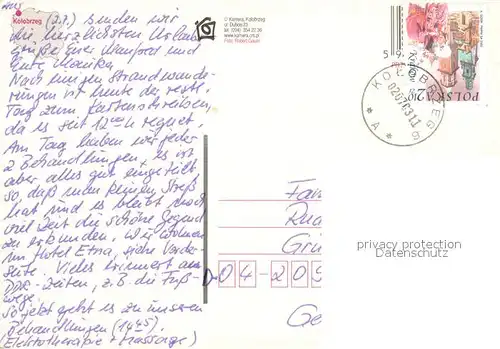 Aus
Kołobrzeg (2.7.) senden wir
die herzlichsten Urlaubs-
grüße Euer Manfred und
Eure Monika.
Nach einigen Strandwande-
rungen ist heute der rechte
Tag zum Kartenschreiben,
da es seit 12 00 h regnet.
Am Tag haben wir jeder
2 Behandlungen, es ist
aber alles gut eingeteilt
so, daß man keinen Streß
hat und es bleibt noch
viel Zeit die schöne Gegend
zu erkunden. Wir wohnen
im Hotel Etna, siehe Vorder-
seite. Vieles erinnert an
DDR-Zeiten, z.B. die Fuß-
wege.
So jetzt geht es zu unseren
Behandlungen (14 45).
(Elektrotherapie + Massage)
© Kamera, Kołobrzeg
ul. Dubois 23
tel. (094) 354 22 36
www.kamera.pl
Foto: Robert Gauer
5 9
POLSKA
2,10
KOŁOBRZEG 6
* A *
Fam
Grü
D-04-209
Ge
privacy protection
Datenschutz